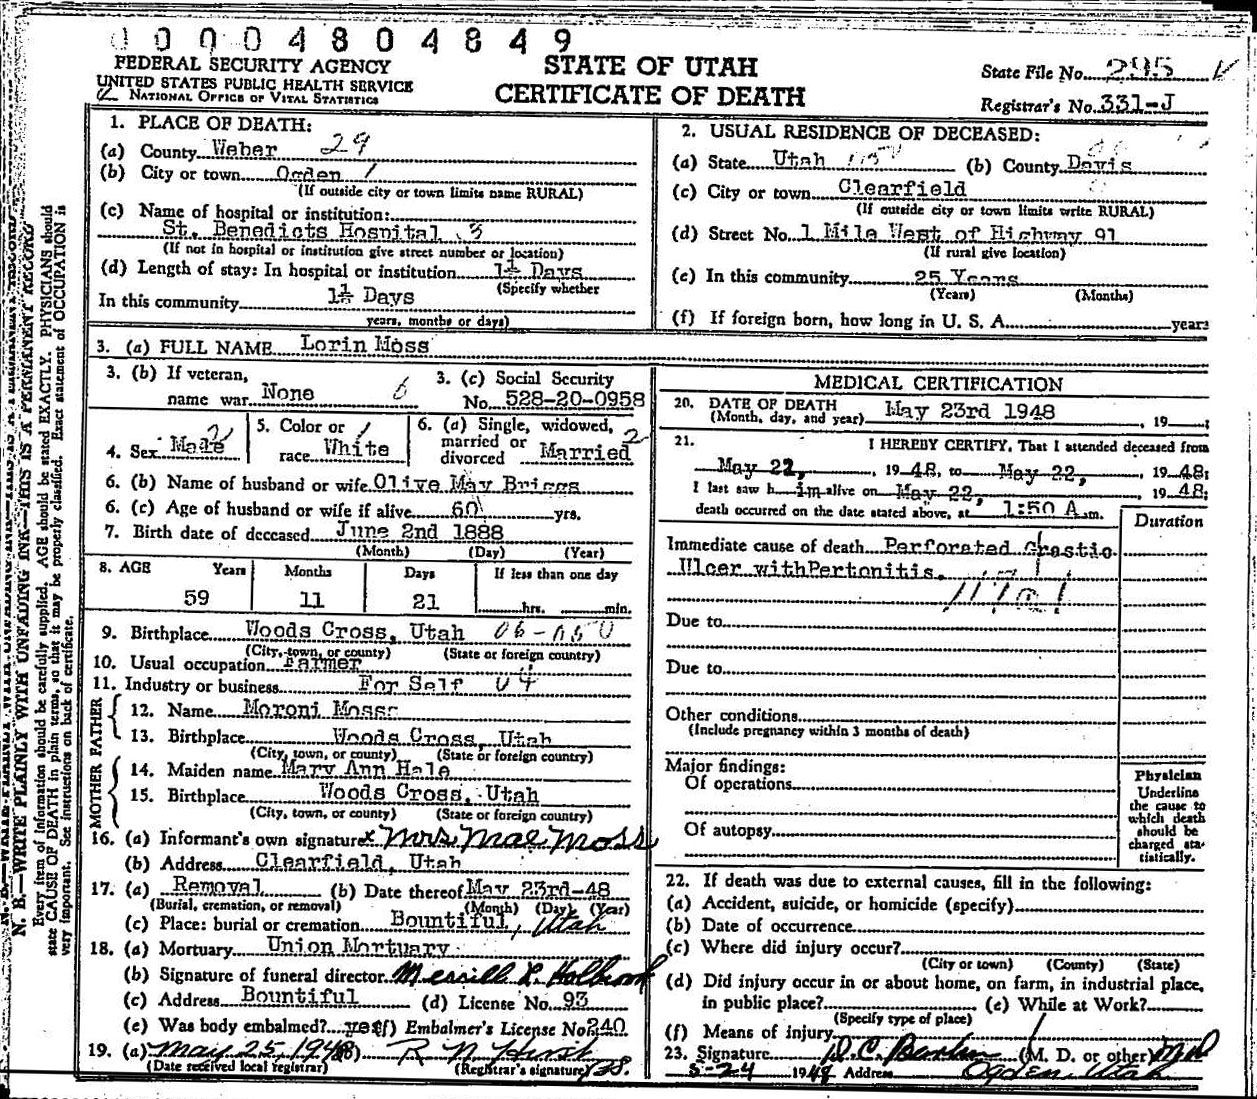 0 0 0 0 4 8 0 4 8 4 9
FEDERAL SECURITY AGENCY
UNITED STATES PUBLIC HEALTH SERVICE
NATIONAL OFFICE OF VITAL STATISTICS
STATE OF UTAH
CERTIFICATE OF DEATH
State File No. 295
Registrar's No. 331-J
N. B.—WRITE PLAINLY WITH UNFADING INK—THIS IS A PERMANENT RECORD
Every item of information should be carefully supplied. AGE should be stated EXACTLY. PHYSICIANS should
state CAUSE OF DEATH in plain terms, so that it may be properly classified. Exact statement of OCCUPATION is
very important. See instructions on back of certificate.
1. PLACE OF DEATH:
(a) County Weber 29
(b) City or town Ogden 1
(If outside city or town limits name RURAL)
(c) Name of hospital or institution:
St. Benedicts Hospital 3
(If not in hospital or institution give street number or location)
(d) Length of stay: In hospital or institution 1½ Days
(Specify whether
In this community 1½ Days
years, months or days)
2. USUAL RESIDENCE OF DECEASED:
(a) State Utah (b) County Davis
(c) City or town Clearfield
(If outside city or town limits write RURAL)
(d) Street No. 1 Mile West of Highway 91
(If rural give location)
(e) In this community 25 Years
(Years) (Months)
(f) If foreign born, how long in U. S. A. years
3. (a) FULL NAME Lorin Moss
3. (b) If veteran,
name war None 6
3. (c) Social Security
No. 528-20-0958
4. Sex Male 2
5. Color or 1
race White
6. (a) Single, widowed, 2
married or
divorced Married
6. (b) Name of husband or wife Olive May Briggs
6. (c) Age of husband or wife if alive 60 yrs.
7. Birth date of deceased June 2nd 1888
(Month) (Day) (Year)
8. AGE Years Months Days If less than one day
59 11 21 hrs. min.
9. Birthplace Woods Cross, Utah
(City, town, or county) (State or foreign country)
10. Usual occupation Farmer
11. Industry or business For Self 04
FATHER
12. Name Moroni Mosss
13. Birthplace Woods Cross, Utah
(City, town, or county) (State or foreign country)
MOTHER
14. Maiden name Mary Ann Hale
15. Birthplace Woods Cross, Utah
(City, town, or county) (State or foreign country)
16. (a) Informant's own signature x Mrs Mae Moss
(b) Address Clearfield, Utah
17. (a) Removal (b) Date thereof May 23rd-48
(Burial, cremation, or removal) (Month) (Day) (Year)
(c) Place: burial or cremation Bountiful, Utah
18. (a) Mortuary Union Mortuary
(b) Signature of funeral director Merrill L Holbrook
(c) Address Bountiful (d) License No. 93
(e) Was body embalmed? yes (f) Embalmer's License No. 240
19. (a) May 25, 1948 (b) R N Hirst
(Date received local registrar) (Registrar's signature)
MEDICAL CERTIFICATION
20. DATE OF DEATH
(Month, day, and year) May 23rd 1948 , 19 ;
21. I HEREBY CERTIFY, That I attended deceased from
May 22, , 19 48, to May 22, , 19 48;
I last saw h im alive on May 22, , 19 48;
death occurred on the date stated above, at 1:50 A.m.
Duration
Immediate cause of death Perforated Grastic
Ulcer withPertonitis.
Due to
Due to
Other conditions
(Include pregnancy within 3 months of death)
Major findings:
Of operations
Of autopsy
Physician
Underline
the cause to
which death
should be
charged sta-
tistically.
22. If death was due to external causes, fill in the following:
(a) Accident, suicide, or homicide (specify)
(b) Date of occurrence
(c) Where did injury occur?
(City or town) (County) (State)
(d) Did injury occur in or about home, on farm, in industrial place,
in public place? (e) While at Work?
(Specify type of place)
(f) Means of injury
23. Signature (M. D. or other) MD
5-24 1948 Address Ogden, Utah